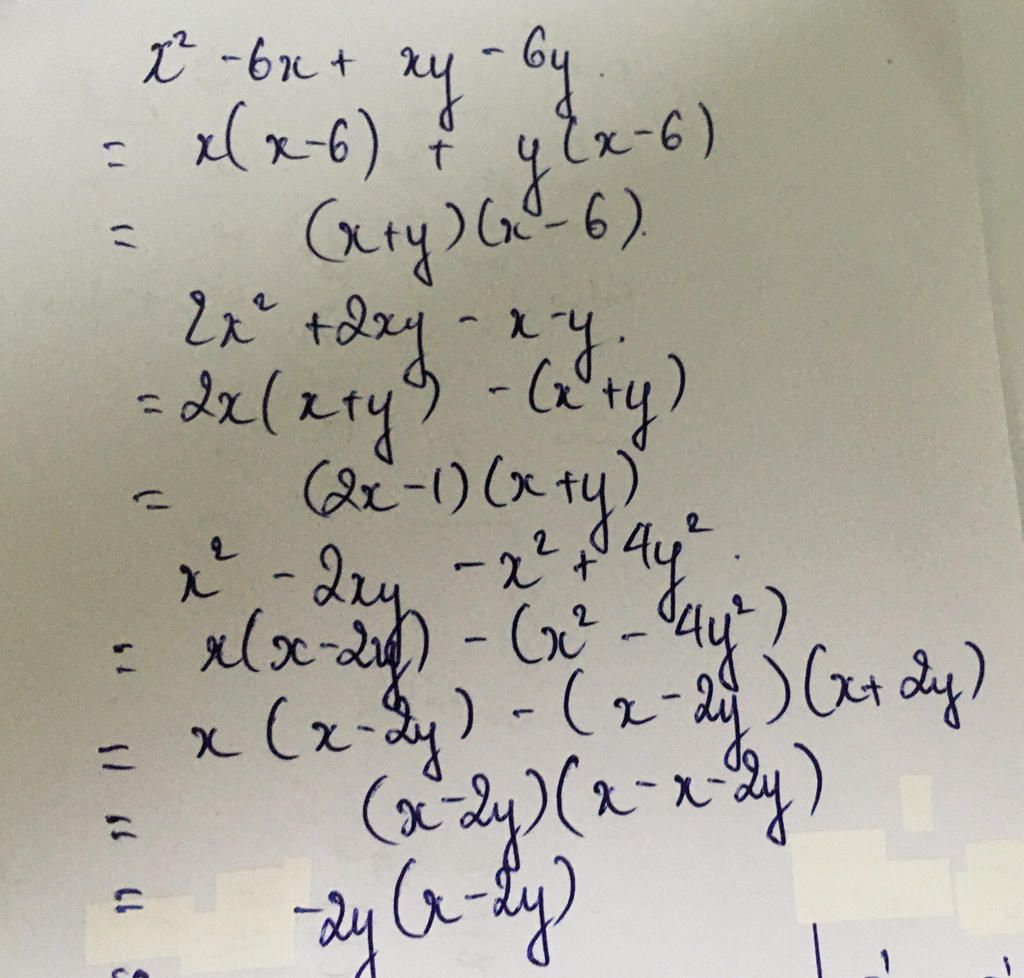 x² - 6x + xy - 6y.
= x(x-6) + y(x-6)
= (x+y)(x-6).
2x² + 2xy - x - y.
= 2x(x+y) - (x+y)
= (2x-1)(x+y)
x² - 2xy - x² + 4y².
= x(x-2y) - (x² - 4y²)
= x(x-2y) - (x-2y)(x+2y)
= (x-2y)(x-x-2y)
= -2y(x-2y)